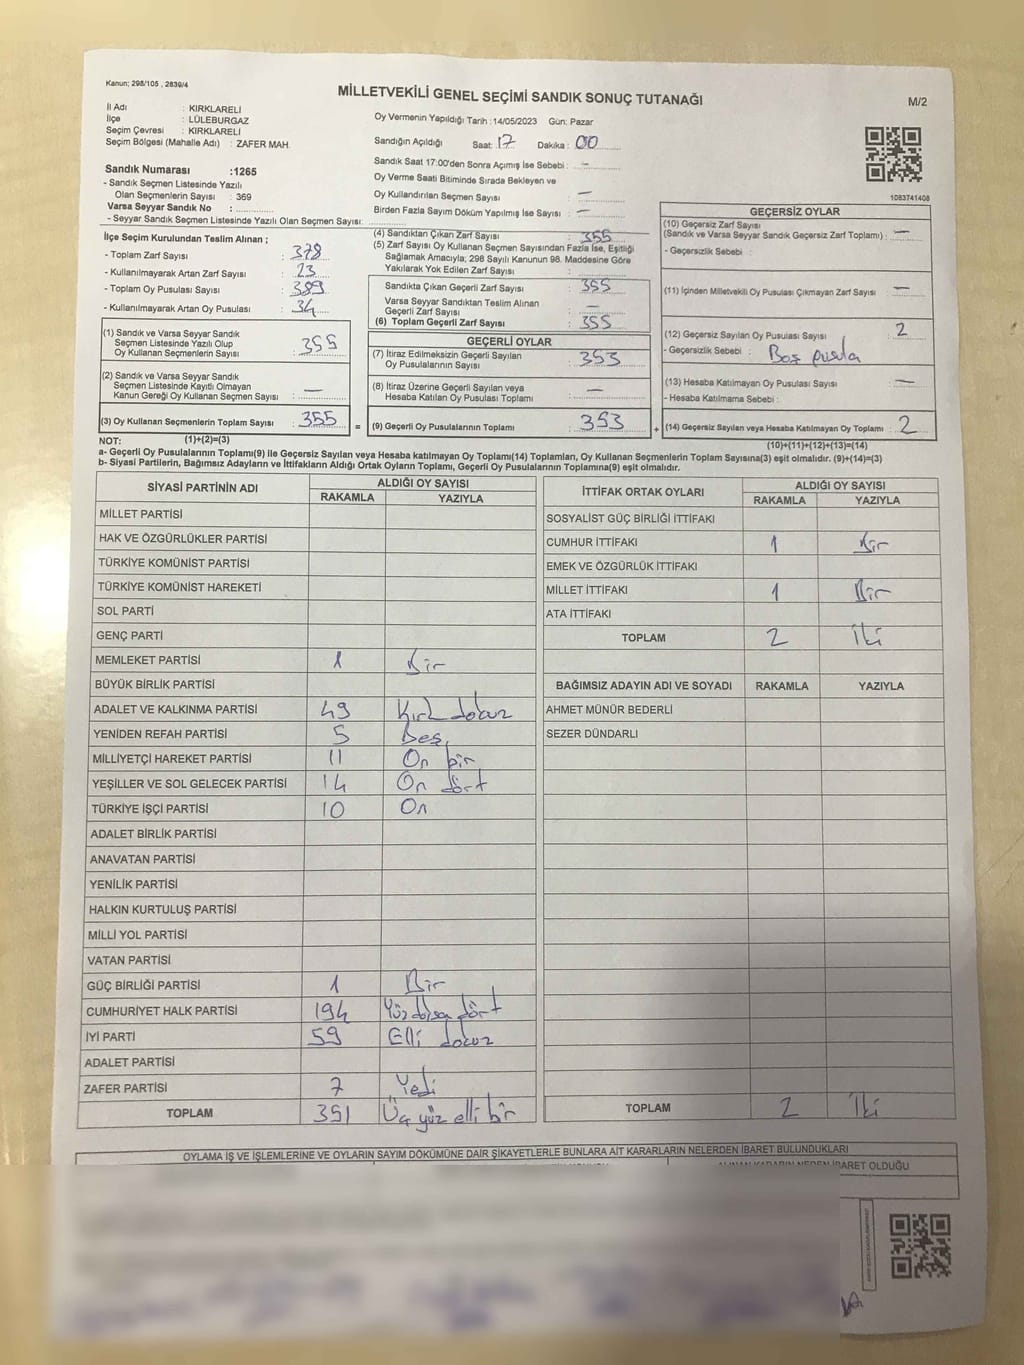 Kanun; 298/105 , 2839/4
MİLLETVEKİLİ GENEL SEÇİMİ SANDIK SONUÇ TUTANAĞI
M/2
İl Adı : KIRKLARELİ
İlçe : LÜLEBURGAZ
Seçim Çevresi : KIRKLARELİ
Seçim Bölgesi (Mahalle Adı) : ZAFER MAH.
Sandık Numarası :1265
- Sandık Seçmen Listesinde Yazılı
Olan Seçmenlerin Sayısı : 369
Varsa Seyyar Sandık No :
- Seyyar Sandık Seçmen Listesinde Yazılı Olan Seçmen Sayısı:
Oy Vermenin Yapıldığı Tarih :14/05/2023 Gün: Pazar
Sandığın Açıldığı Saat: 17 Dakika : 00
Sandık Saat 17:00'den Sonra Açımış İse Sebebi : -
Oy Verme Saati Bitiminde Sırada Bekleyen ve
Oy Kullandırılan Seçmen Sayısı : -
Birden Fazla Sayım Döküm Yapılmış İse Sayısı : -
1083741408
İlçe Seçim Kurulundan Teslim Alınan ;
- Toplam Zarf Sayısı : 378
- Kullanılmayarak Artan Zarf Sayısı : 23
- Toplam Oy Pusulası Sayısı : 389
- Kullanılmayarak Artan Oy Pusulası : 34
(1) Sandık ve Varsa Seyyar Sandık
Seçmen Listesinde Yazılı Olup
Oy Kullanan Seçmenlerin Sayısı : 355
(2) Sandık ve Varsa Seyyar Sandık
Seçmen Listesinde Kayıtlı Olmayan
Kanun Gereği Oy Kullanan Seçmen Sayısı : -
(3) Oy Kullanan Seçmenlerin Toplam Sayısı : 355 =
(4) Sandıktan Çıkan Zarf Sayısı : 355
(5) Zarf Sayısı Oy Kullanan Seçmen Sayısından Fazla İse, Eşitliği
Sağlamak Amacıyla; 298 Sayılı Kanunun 98. Maddesine Göre
Yakılarak Yok Edilen Zarf Sayısı :
Sandıkta Çıkan Geçerli Zarf Sayısı : 355
Varsa Seyyar Sandıktan Teslim Alınan
Geçerli Zarf Sayısı : -
(6) Toplam Geçerli Zarf Sayısı : 355
GEÇERLİ OYLAR
(7) İtiraz Edilmeksizin Geçerli Sayılan
Oy Pusulalarının Sayısı : 353
(8) İtiraz Üzerine Geçerli Sayılan veya
Hesaba Katılan Oy Pusulası Toplamı : -
(9) Geçerli Oy Pusulalarının Toplamı : 353 +
GEÇERSİZ OYLAR
(10) Geçersiz Zarf Sayısı
(Sandık ve Varsa Seyyar Sandık Geçersiz Zarf Toplamı) : -
- Geçersizlik Sebebi :
(11) İçinden Milletvekili Oy Pusulası Çıkmayan Zarf Sayısı : -
(12) Geçersiz Sayılan Oy Pusulası Sayısı : 2
- Geçersizlik Sebebi : Boş pusula
(13) Hesaba Katılmayan Oy Pusulası Sayısı : -
- Hesaba Katılmama Sebebi :
(14) Geçersiz Sayılan veya Hesaba Katılmayan Oy Toplamı : 2
NOT: (1)+(2)=(3) (10)+(11)+(12)+(13)=(14)
a- Geçerli Oy Pusulalarının Toplamı(9) İle Geçersiz Sayılan veya Hesaba katılmayan Oy Toplamı(14) Toplamları, Oy Kullanan Seçmenlerin Toplam Sayısına(3) eşit olmalıdır. (9)+(14)=(3)
b- Siyasi Partilerin, Bağımsız Adayların ve İttifakların Aldığı Ortak Oyların Toplamı, Geçerli Oy Pusulalarının Toplamına(9) eşit olmalıdır.
SİYASİ PARTİNİN ADI ALDIĞI OY SAYISI
RAKAMLA YAZIYLA
MİLLET PARTİSİ
HAK VE ÖZGÜRLÜKLER PARTİSİ
TÜRKİYE KOMÜNİST PARTİSİ
TÜRKİYE KOMÜNİST HAREKETİ
SOL PARTİ
GENÇ PARTİ
MEMLEKET PARTİSİ 1 Bir
BÜYÜK BİRLİK PARTİSİ
ADALET VE KALKINMA PARTİSİ 49 Kırk dokuz
YENİDEN REFAH PARTİSİ 5 Beş
MİLLİYETÇİ HAREKET PARTİSİ 11 On bir
YEŞİLLER VE SOL GELECEK PARTİSİ 14 On dört
TÜRKİYE İŞÇİ PARTİSİ 10 On
ADALET BİRLİK PARTİSİ
ANAVATAN PARTİSİ
YENİLİK PARTİSİ
HALKIN KURTULUŞ PARTİSİ
MİLLİ YOL PARTİSİ
VATAN PARTİSİ
GÜÇ BİRLİĞİ PARTİSİ 1 Bir
CUMHURİYET HALK PARTİSİ 194 Yüz doksan dört
İYİ PARTİ 59 Elli dokuz
ADALET PARTİSİ
ZAFER PARTİSİ 7 Yedi
TOPLAM 351 Üç yüz elli bir
İTTİFAK ORTAK OYLARI ALDIĞI OY SAYISI
RAKAMLA YAZIYLA
SOSYALİST GÜÇ BİRLİĞİ İTTİFAKI
CUMHUR İTTİFAKI 1 Bir
EMEK VE ÖZGÜRLÜK İTTİFAKI
MİLLET İTTİFAKI 1 Bir
ATA İTTİFAKI
TOPLAM 2 İki
BAĞIMSIZ ADAYIN ADI VE SOYADI RAKAMLA YAZIYLA
AHMET MÜNÜR BEDERLİ
SEZER DÜNDARLI
TOPLAM 2 İki
OYLAMA İŞ VE İŞLEMLERİNE VE OYLARIN SAYIM DÖKÜMÜNE DAİR ŞİKAYETLERLE BUNLARA AİT KARARLARIN NELERDEN İBARET BULUNDUKLARI
ALINAN KARARIN NEDEN İBARET OLDUĞU